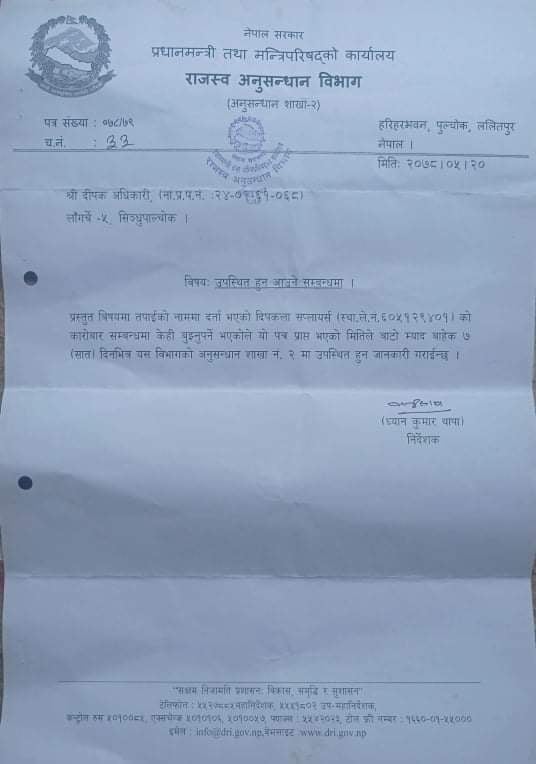 नेपाल सरकार
प्रधानमन्त्री तथा मन्त्रिपरिषद्को कार्यालय
राजस्व अनुसन्धान विभाग
(अनुसन्धान शाखा-२)
पत्र संख्या : ०७८/७९
च.नं. : ३३
हरिहरभवन, पुल्चोक, ललितपुर
नेपाल ।
मिति: २०७८।०५।२०
राजस्व अनुसन्धान विभाग
श्री दीपक अधिकारी, (ना.प्र.प.नं. :२४-०६८)
लागर्चे -५, सिन्धुपाल्चोक ।
विषय: उपस्थित हुन आउने सम्बन्धमा ।
प्रस्तुत विषयमा तपाईको नाममा दर्ता भएको दिपकला सप्लायर्स (स्था.ले.नं.६०५१२९४०१) को
कारोबार सम्बन्धमा केही बुझ्नुपर्ने भएकोले यो पत्र प्राप्त भएको मितिले बाटो म्याद बाहेक ७
(सात) दिनभित्र यस विभागको अनुसन्धान शाखा नं. २ मा उपस्थित हुन जानकारी गराईन्छ ।
(ध्यान कुमार थापा)
निर्देशक
"सक्षम निजामति प्रशासन: विकास, समृद्धि र सुशासन"
टेलिफोन : ५५२७८८५महानिर्देशक, ५५५१८०२ उप-महानिर्देशक,
कन्ट्रोल रुम ५०१००८५, एक्सचेन्ज ५०१०१०६, ५०१००५७, फ्याक्स : ५५४२०२३, टोल फ्री नम्बर : १६६०-०१-५५०००
इमेल : info@dri.gov.np,वेभसाइट :www.dri.gov.np